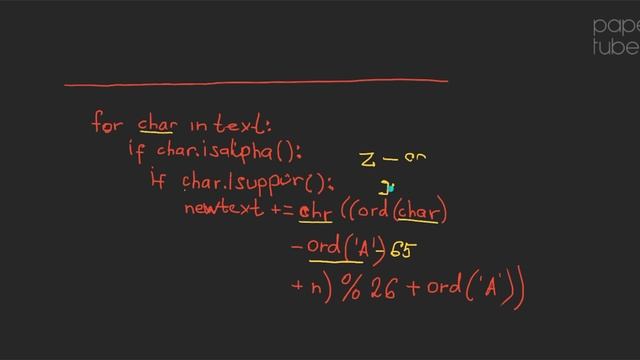 pape
tube
for char in text:
if char.isalpha():
if char.Isuppur():
newtext += chr ((ord(char)
- ord('A') - 65
+ n) % 26 + ord('A'))
z -